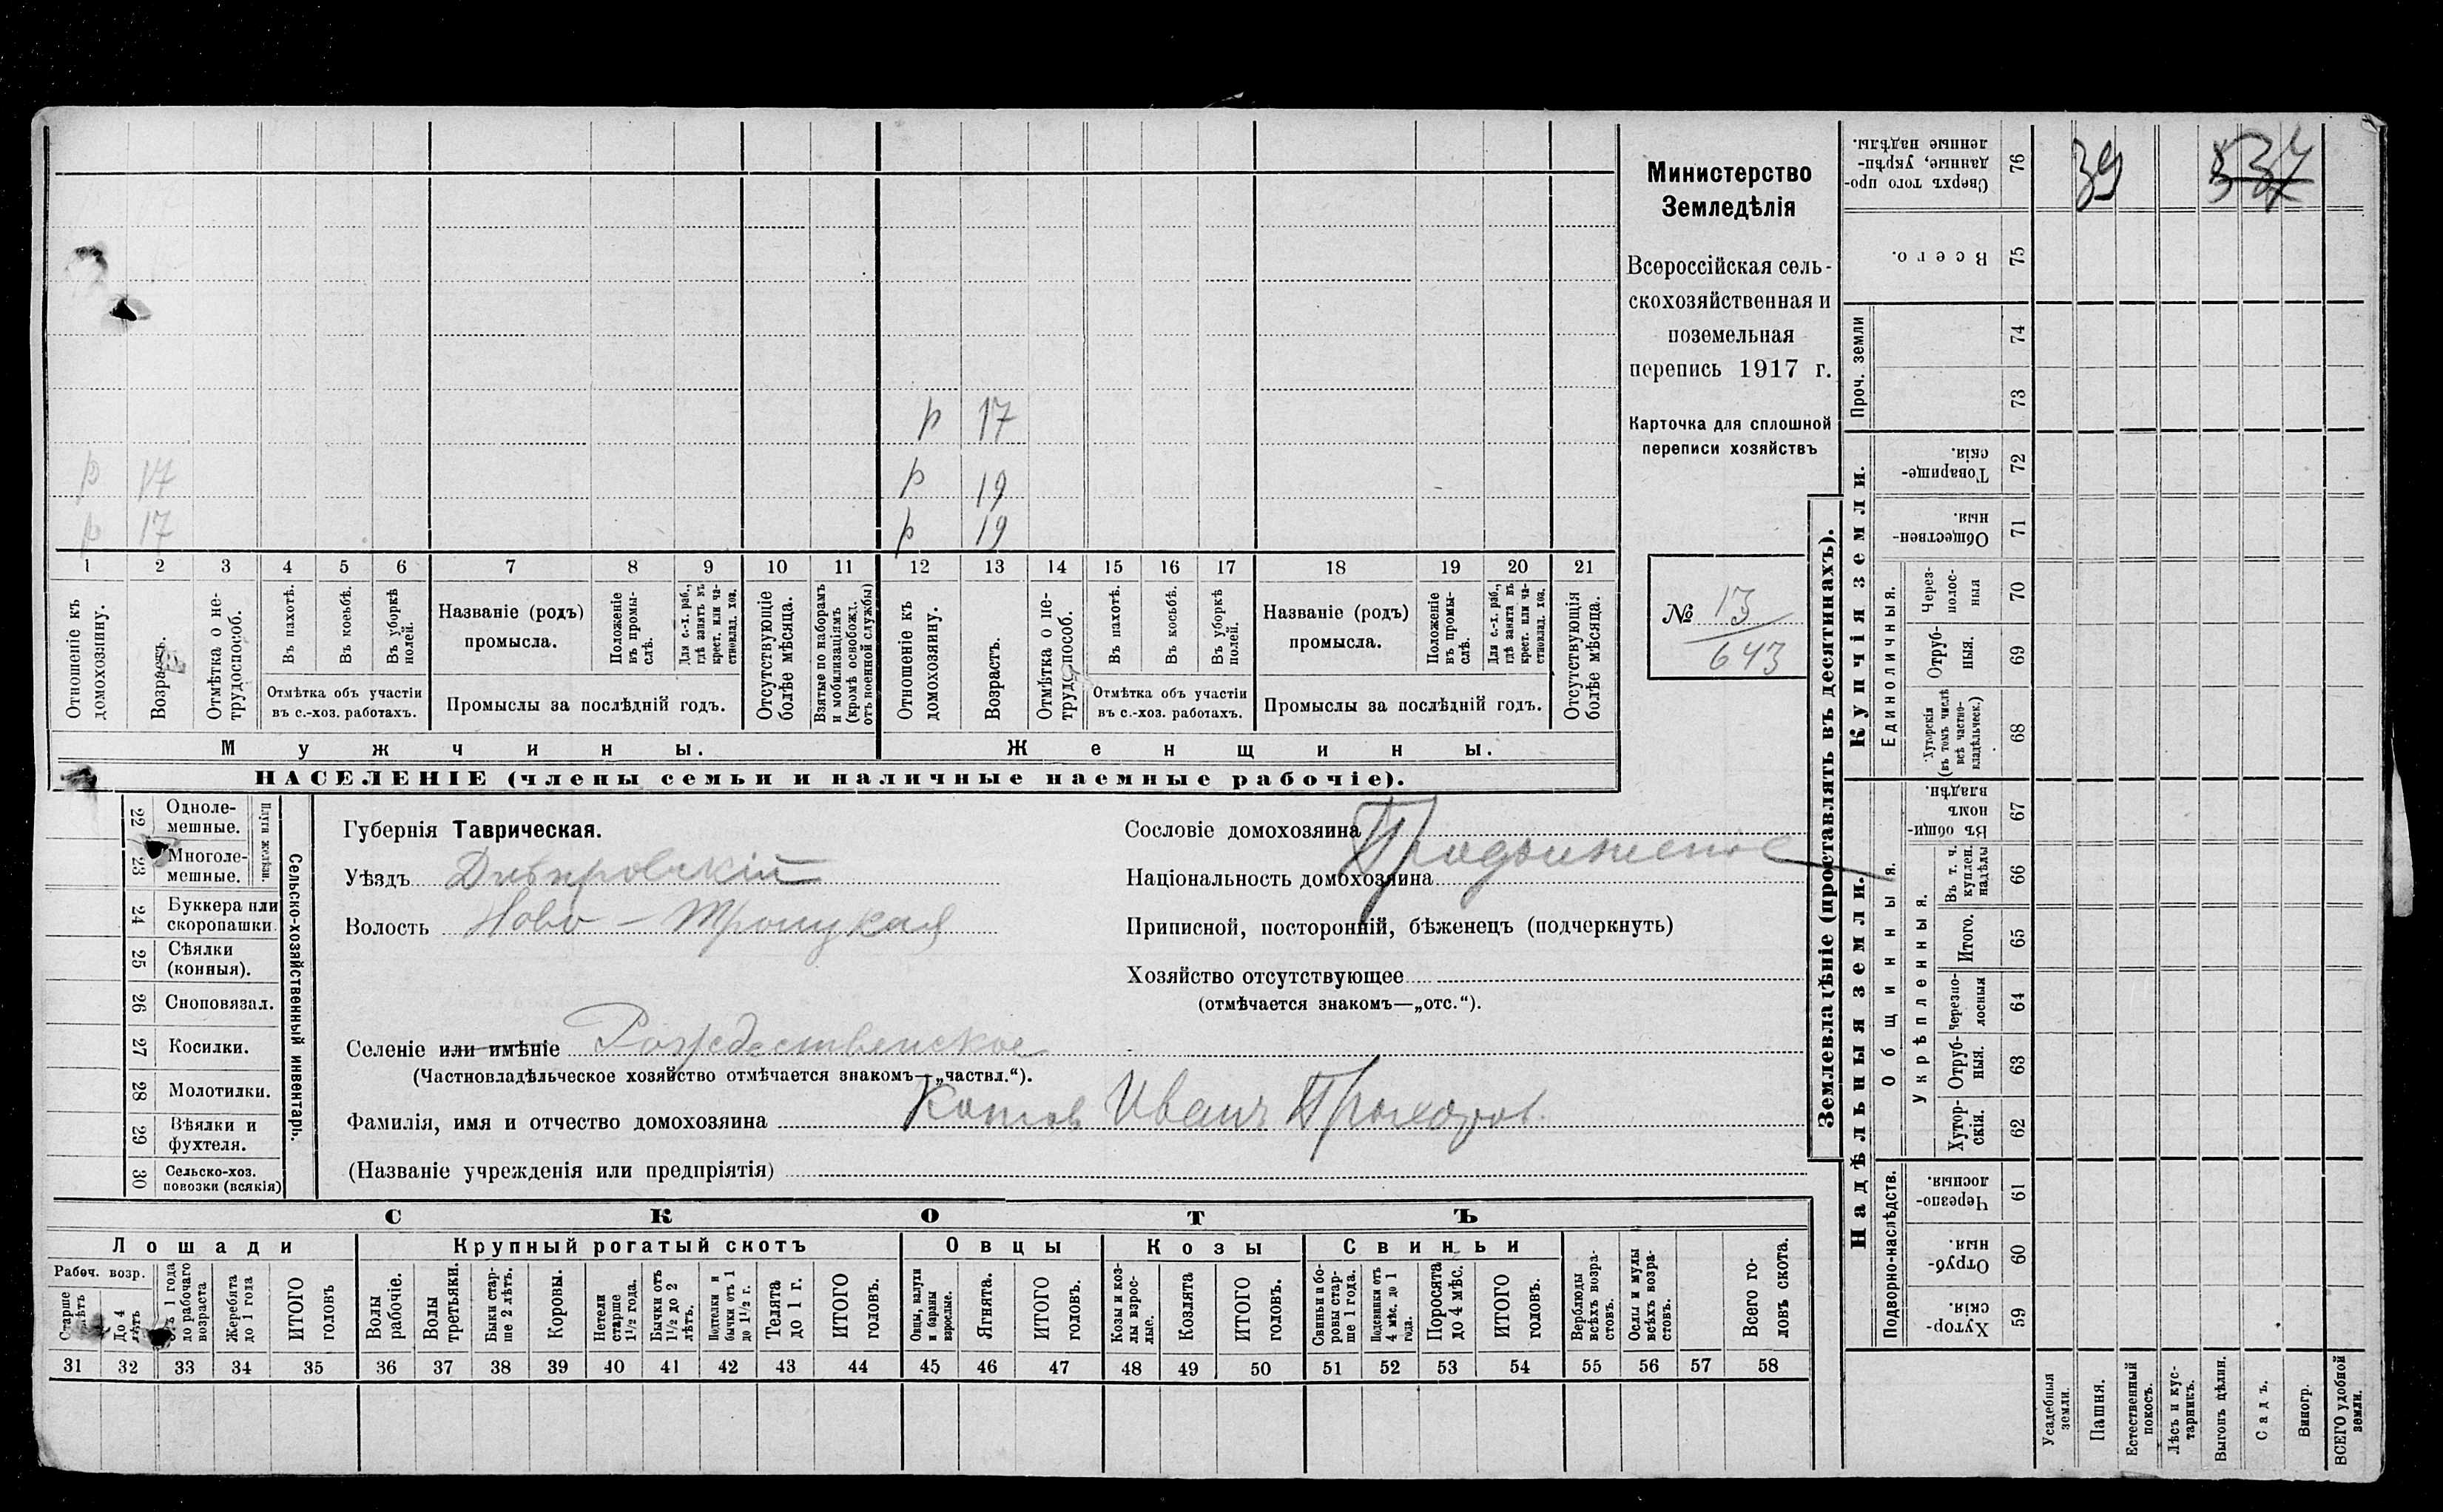 Министерство
Земледѣлія
Всероссійская сель-
скохозяйственная и
поземельная
перепись 1917 г.
Карточка для сплошной
переписи хозяйствъ
№ 13
643
р 17
р 17
р 19
р 17
р 19
1 2 3 4 5 6 7 8 9 10 11 12 13 14 15 16 17 18 19 20 21
Отношеніе къ домохозяину.
Возрастъ.
Отмѣтка о не-трудоспособ.
Въ пахотѣ.
Въ косьбѣ.
Въ уборкѣ полей.
Отмѣтка объ участіи
въ с.-хоз. работахъ.
Названіе (родъ)
промысла.
Положеніе въ промы-слѣ.
Для с.-х. раб., гдѣ занятъ въ крест. или ча-стновлад. хоз.
Промыслы за послѣдній годъ.
Отсутствующіе болѣе мѣсяца.
Взятые по наборамъ и мобилизаціямъ (кромѣ освобожд. отъ военной службы)
Отношеніе къ домохозяину.
Возрастъ.
Отмѣтка о не-трудоспособ.
Въ пахотѣ.
Въ косьбѣ.
Въ уборкѣ полей.
Отмѣтка объ участіи
въ с.-хоз. работахъ.
Названіе (родъ)
промысла.
Положеніе въ промы-слѣ.
Для с.-х. раб., гдѣ занята въ крест. или ча-стновлад. хоз.
Промыслы за послѣдній годъ.
Отсутствующія болѣе мѣсяца.
Мужчины.
Женщины.
НАСЕЛЕНІЕ (члены семьи и наличные наемные рабочіе).
Сельско-хозяйственный инвентарь.
Плуги желѣзн.
22 Одноле-мешные.
23 Многоле-мешные.
24 Буккера или скоропашки
25 Сѣялки (конныя).
26 Сноповязал.
27 Косилки.
28 Молотилки.
29 Вѣялки и фухтеля.
30 Сельско-хоз. повозки (всякія)
Губернія Таврическая.
Уѣздъ Днѣпровскій
Волость Ново-Троицкая
Селеніе или имѣніе Рождественское
(Частновладѣльческое хозяйство отмѣчается знакомъ—„частвл.“).
Фамилія, имя и отчество домохозяина Котов Иванъ Прохоров.
(Названіе учрежденія или предпріятія)
Сословіе домохозяина
Продолженіе
Національность домохозяина
Приписной, посторонній, бѣженецъ (подчеркнуть)
Хозяйство отсутствующее
(отмѣчается знакомъ—„отс.“).
СКОТЪ
Лошади
Крупный рогатый скотъ
Овцы
Козы
Свиньи
Рабоч. возр.
Старше 4 лѣтъ
До 4 лѣтъ
Отъ 1 года до рабочаго возраста
Жеребята до 1 года
ИТОГО головъ
Волы рабочіе.
Волы третьяки.
Быки стар-ше 2 лѣтъ.
Коровы.
Нетели старше 1½ года.
Бычки отъ 1½ до 2 лѣтъ.
Подтелки и бычки отъ 1 до 1½ г.
Телята до 1 г.
ИТОГО головъ.
Овцы, валухи и бараны взрослые.
Ягнята.
ИТОГО головъ.
Козы и коз-лы взрос-лые.
Козлята
ИТОГО головъ.
Свиньи и бо-ровы стар-ше 1 года.
Подсвинки отъ 4 мѣс. до 1 года.
Поросята до 4 мѣс.
ИТОГО головъ.
Верблюды всѣхъ возра-стовъ.
Ослы и мулы всѣхъ возра-стовъ.
Всего го-ловъ скота.
31 32 33 34 35 36 37 38 39 40 41 42 43 44 45 46 47 48 49 50 51 52 53 54 55 56 57 58
Землевладѣніе (проставлять въ десятинахъ).
Надѣльныя земли.
Купчія земли.
Проч. земли
Подворно-наслѣдств.
Общинныя.
Укрѣпленныя.
Единоличныя.
76 Сверхъ того про-данные, укрѣп-ленные надѣлы. 39 537
75 Всего.
74
73
72 Товарище-скія.
71 Обществен-ныя.
70 Через-полос-ныя
69 Отруб-ныя.
68 Хуторскія (въ томъ числѣ всѣ частно-владѣльческ.)
67 Въ общи-номъ владѣн.
66 Въ т. ч. куплен. надѣлы
65 Итого.
64 Черезпо-лосныя
63 Отруб-ныя.
62 Хутор-скія.
61 Черезпо-лосныя.
60 Отруб-ныя.
59 Хутор-скія.
Усадебныя земли.
Пашня.
Естественный покосъ.
Лѣсъ и кус-тарникъ.
Выгонъ цѣлин.
Садъ.
Виногр.
ВСЕГО удобной земли.